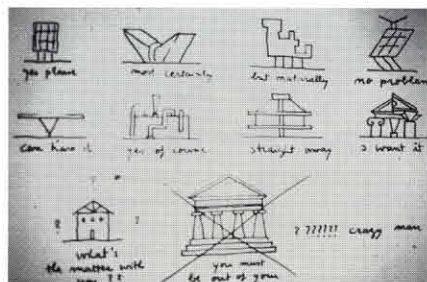 yes please
most certainly
but naturally
no problem
can have it
yes of course
straight away
I want it
? ?
?
what's
the matter with
you ??
you must
be out of your
? ?????? crazy man